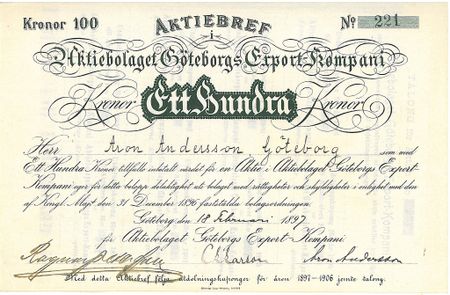 Kronor 100
AKTIEBREF
No 221
i
Aktiebolaget Göteborgs Export-Kompani
Kronor Ett Hundra Kronor
Herr Aron Andersson Göteborg som med
Ett Hundra Kronor tillfullo inbetalt värdet för en Aktie i Aktiebolaget Göteborgs Export
Kompani eger för detta belopp delaktighet uti bolaget med rättigheter och skyldigheter i enlighet med den
af Kongl. Maj:t den 31 December 1896 fastställda bolagsordningen.
Göteborg den 18 Februari 1897.
för Aktiebolaget Göteborgs Export-Kompani
Carlson Aron Andersson
Med detta Aktiebref följa utdelningskuponger för åren 1897-1906 jemte talong.